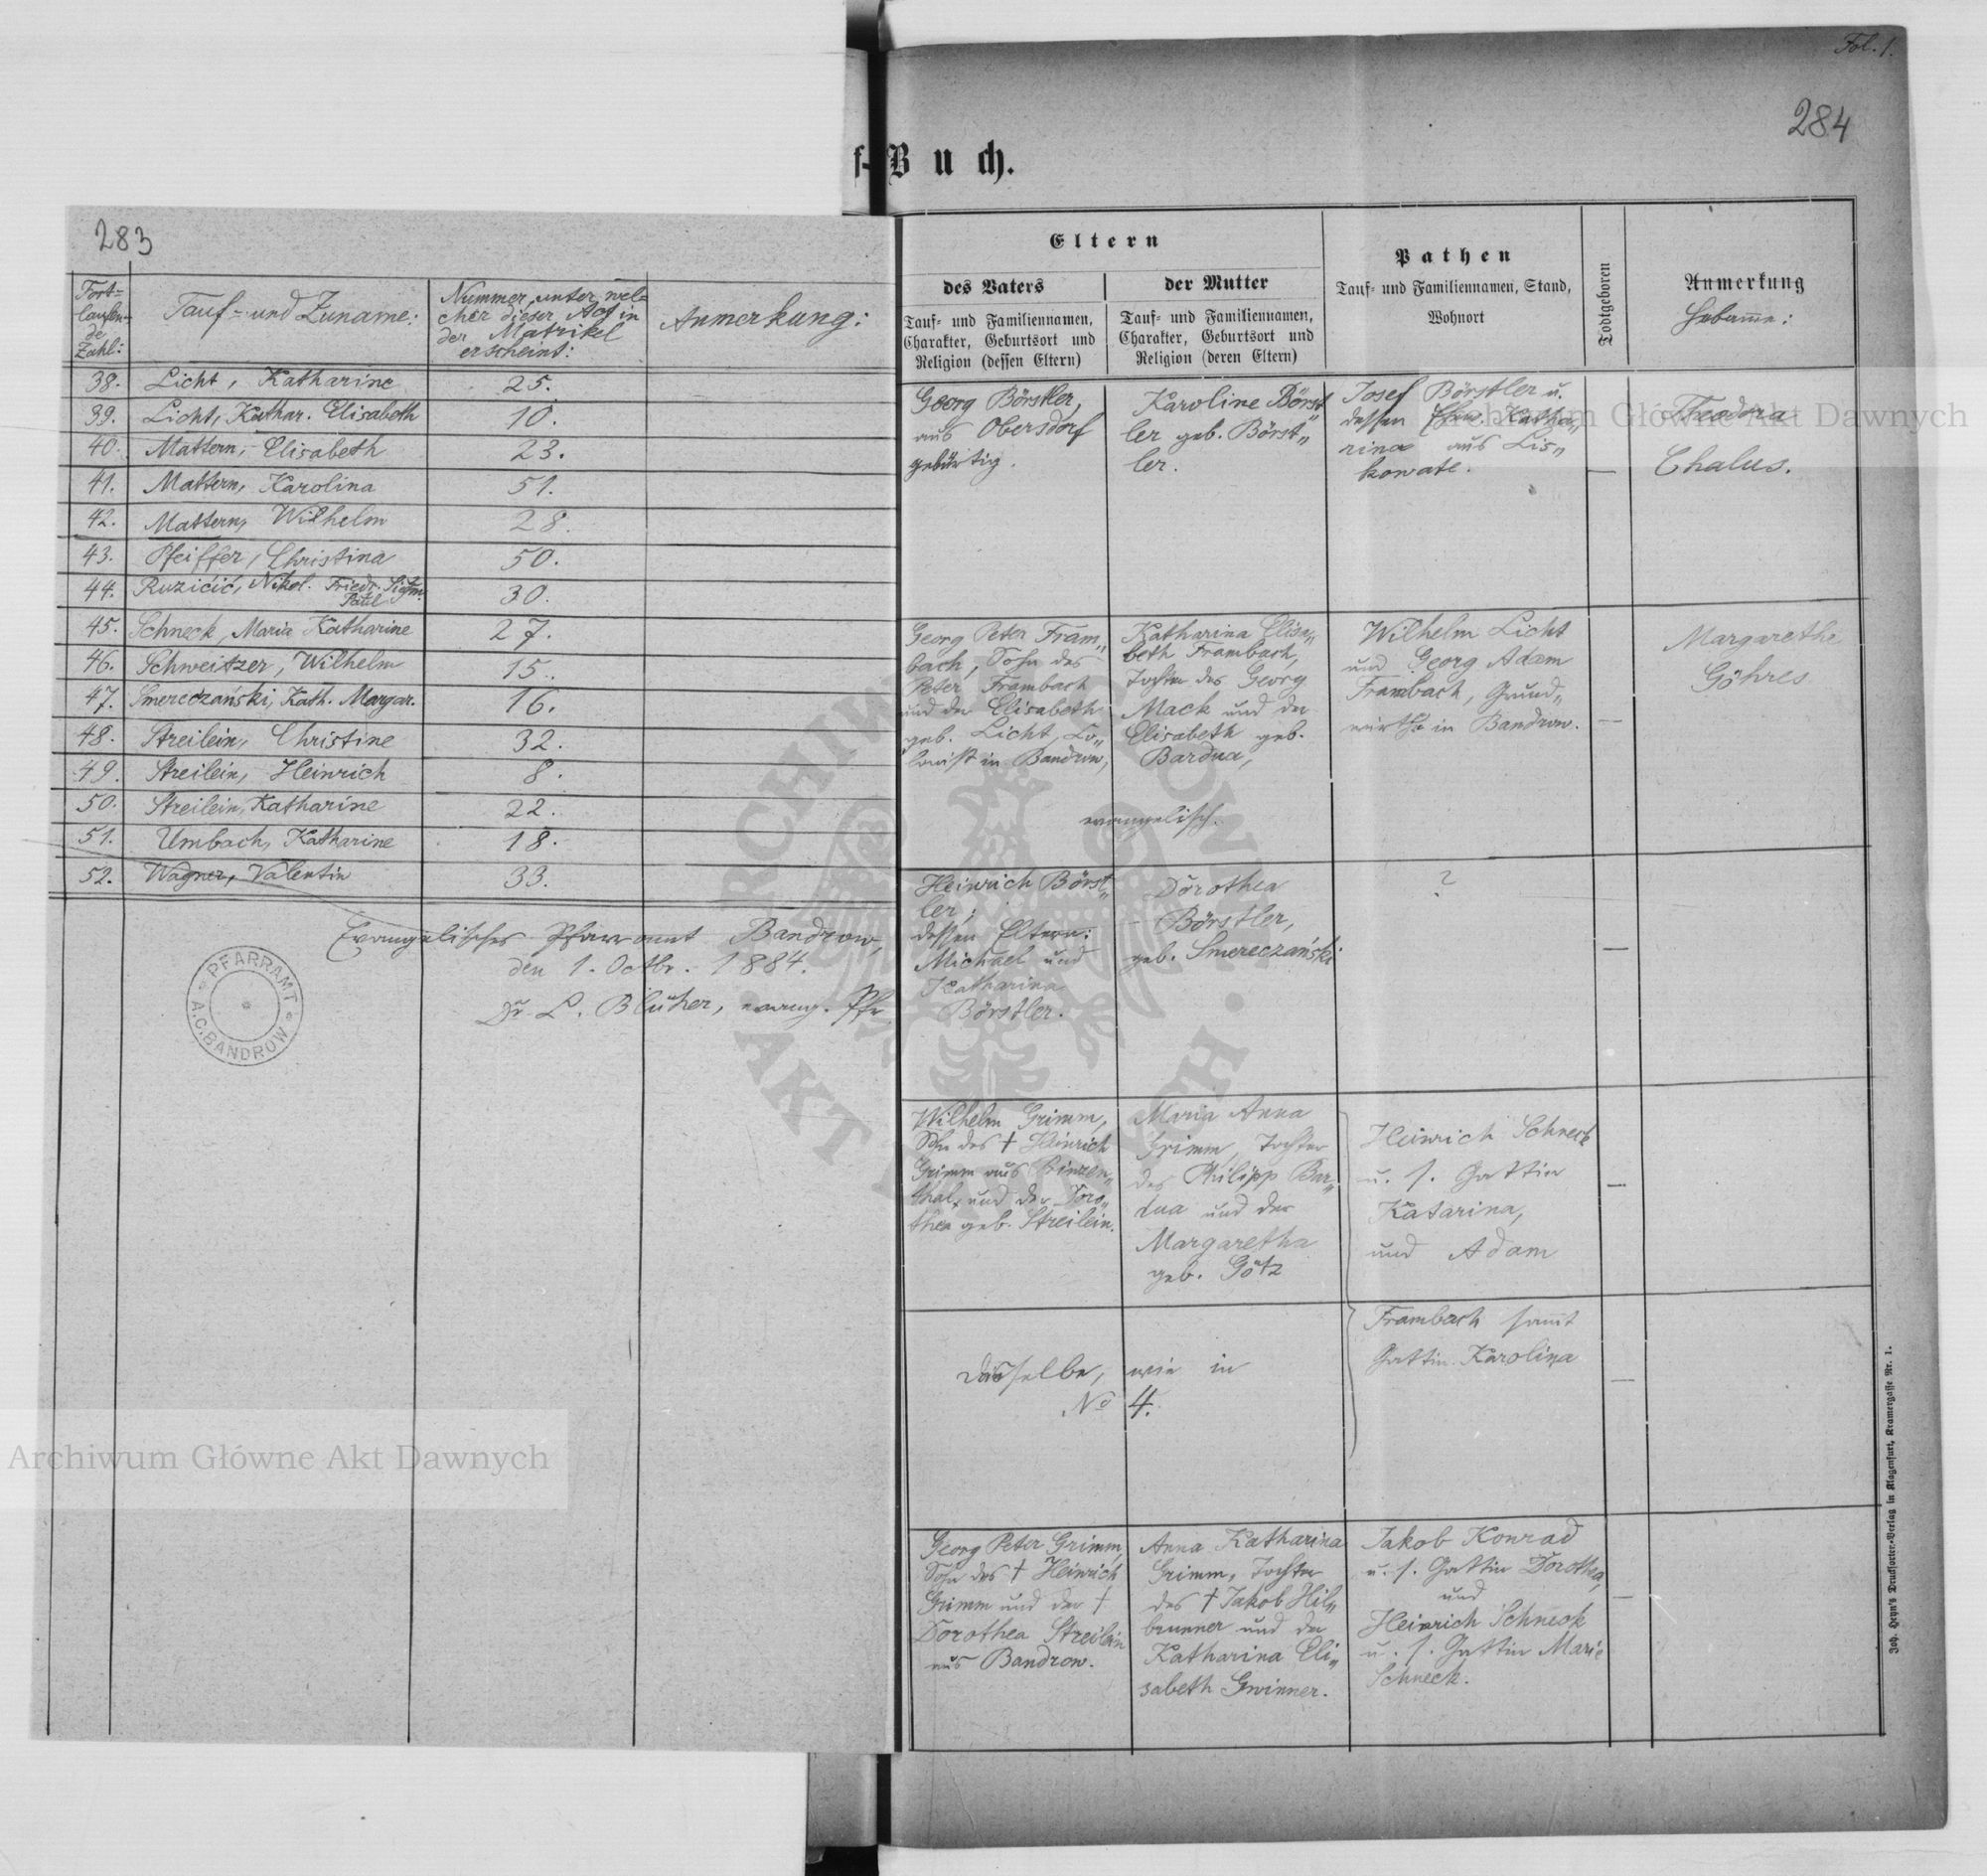 Fol. 1.
284
f-Buch.
283
Fort-
laufen-
de
Zahl:
Tauf- und Zuname:
Nummer, unter wel-
cher dieser Act in
der Matrikel
erscheint:
Anmerkung:
38. Licht, Katharine 25.
39. Licht, Kathar. Elisabeth 10.
40. Mattern, Elisabeth 23.
41. Mattern, Karolina 51.
42. Mattern, Wilhelm 28.
43. Pfeiffer, Christina 50.
44. Ruzičić, Nikol. Friedr. Sigm. 30.
Paul
45. Schneck, Maria Katharine 27.
46. Schweitzer, Wilhelm 15.
47. Smereczański, Kath. Margar. 16.
48. Streilein, Christine 32.
49. Streilein, Heinrich 8.
50. Streilein, Katharine 22.
51. Umbach, Katharine 18.
52. Wagner, Valentin 33.
Evangelisches Pfarramt Bandrow,
den 1. Octbr. 1884.
Dr. L. Blüher, evang. Pfr.
PFARRAMT
A.C. BANDROW
Eltern
des Vaters
Tauf- und Familiennamen,
Charakter, Geburtsort und
Religion (dessen Eltern)
der Mutter
Tauf- und Familiennamen,
Charakter, Geburtsort und
Religion (deren Eltern)
Pathen
Tauf- und Familiennamen, Stand,
Wohnort
Todtgeboren
Anmerkung
Hebamme:
Georg Börstler,
aus Obersdorf
gebürtig.
Karoline Börst„
ler geb. Börst„
ler.
Josef Börstler u.
dessen Ehew. Katha„
rina aus Lis„
kowate.
—
Theodora
Chalus.
Georg Peter Fram„
bach, Sohn des
Peter Frambach
und der Elisabeth
geb. Licht, Co„
lonist in Bandrow,
Katharina Elisa„
beth Frambach,
Tochter des Georg
Mack und der
Elisabeth geb.
Bardua,
evangelisch.
Wilhelm Licht
und Georg Adam
Frambach, Grund„
wirthe in Bandrow.
—
Margarethe
Göhres
Heinrich Börst„
ler;
dessen Eltern:
Michael und
Katharina
Börstler.
Dorothea
Börstler,
geb. Smereczański.
?
—
Wilhelm Grimm,
Sohn des † Heinrich
Grimm aus Prinzen„
thal, und der Doro„
thea geb. Streilein.
Maria Anna
Grimm, Tochter
des Philipp Bar„
dua und der
Margaretha
geb. Götz
Heinrich Schneck
u. s. Gattin
Katarina,
und Adam
—
dasselbe, wie in
No 4.
Frambach sammt
Gattin Karolina
—
Georg Peter Grimm,
Sohn des † Heinrich
Grimm und der †
Dorothea Streilein
aus Bandrow.
Anna Katharina
Grimm, Tochter
des † Jakob Hil„
brunner und der
Katharina Eli„
sabeth Gwinner.
Jakob Konrad
u. s. Gattin Dorothea,
und
Heinrich Schneck
u. s. Gattin Marie
Schneck.
—
Joh. Heyn's Drucksorten-Verlag in Klagenfurt, Kramergasse Nr. 1.
Archiwum Główne Akt Dawnych
Archiwum Główne Akt Dawnych